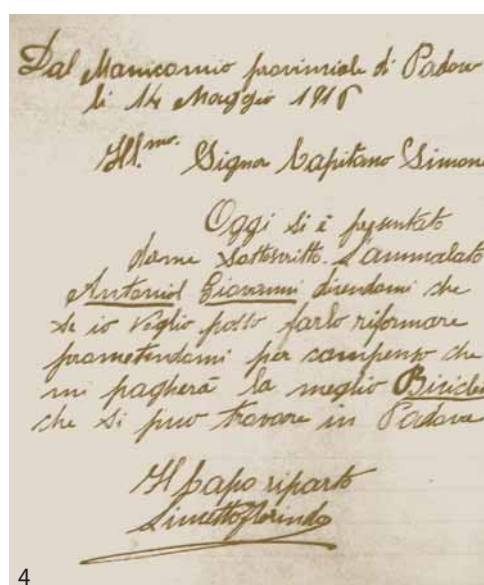 Dal Manicomio provinciale di Padova
li 14 Maggio 1916
Ill.mo Signor Capitano Simone
Oggi si è presentato
dame sottoscritto l'ammalato
Antoniol Giovanni dicendomi che
se io voglio posso farlo riformare
prometendomi per compenso che
mi pagherà la meglio Bicicle
che si può trovare in Padova
Il Capo riparto
4